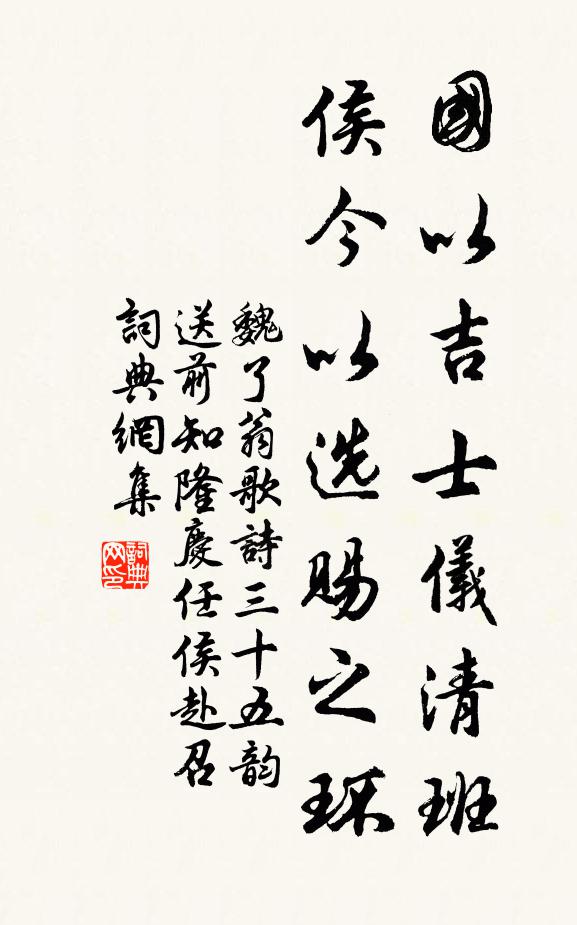 國以吉士儀清班
侯今以选赐之环
魏了翁歌詩三十五韵
送前知隆慶任侯赴召
詞典網集
詞典网印